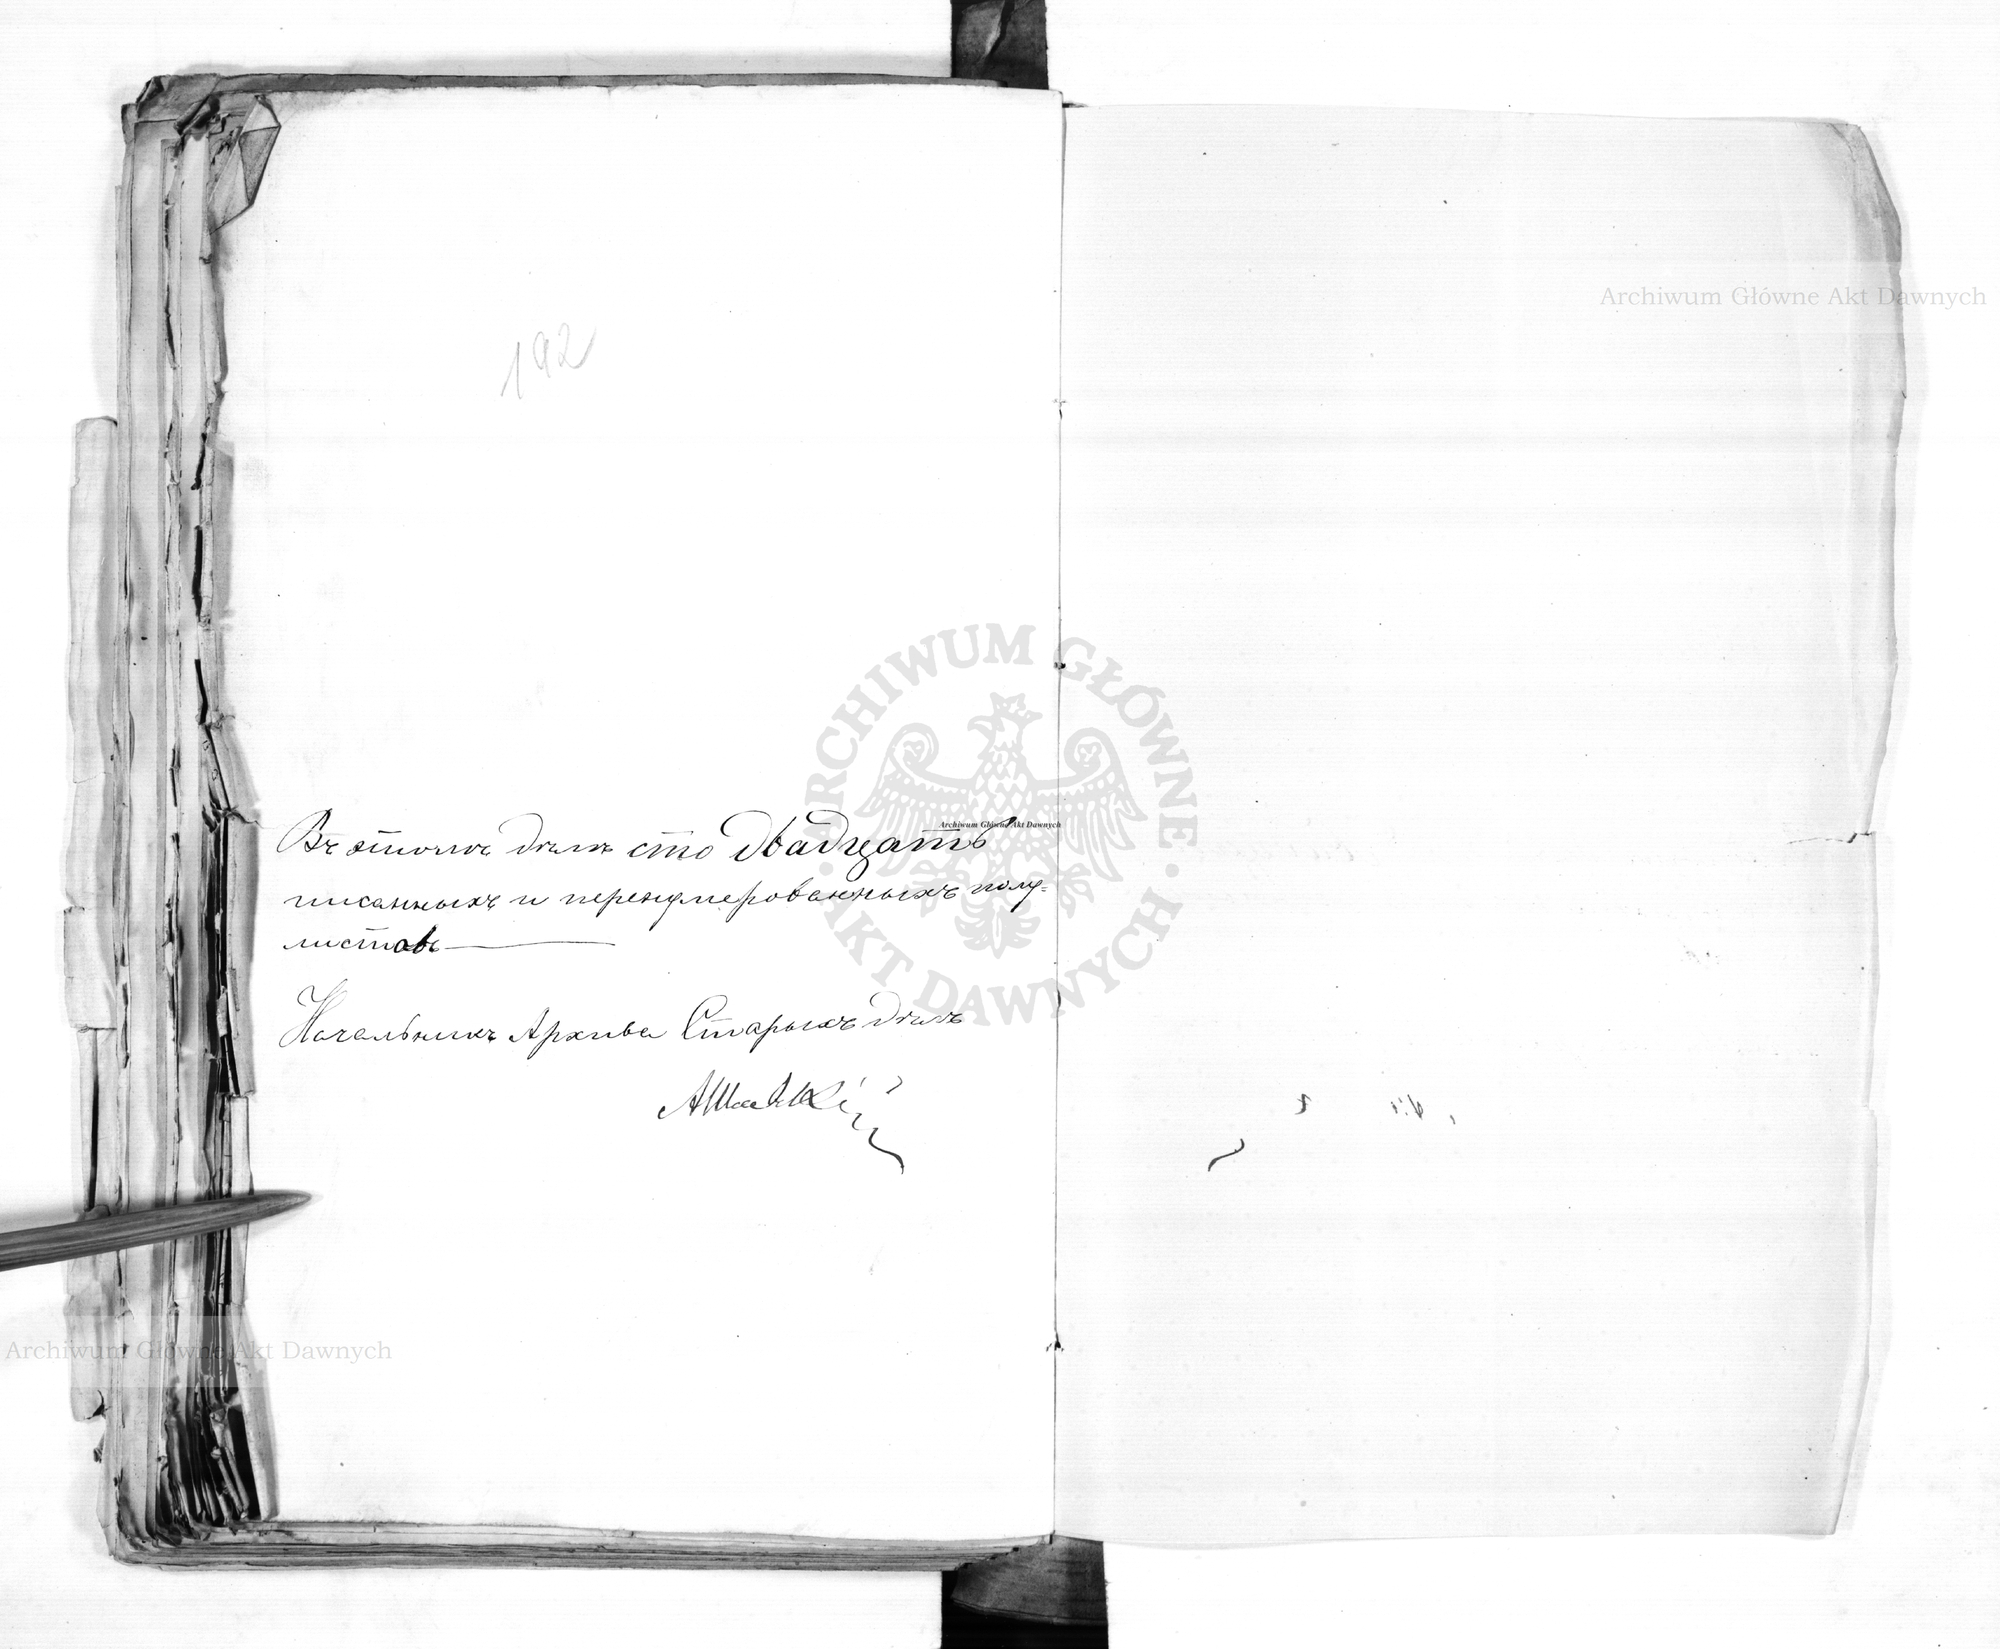 192
Въ этомъ дѣлѣ сто двадцать
писанныхъ и перенумерованныхъ полу=
листовъ
Начальникъ Архива Старыхъ дѣлъ
Archiwum Główne Akt Dawnych
ARCHIWUM GŁÓWNE · AKT DAWNYCH ·
Archiwum Główne Akt Dawnych
Archiwum Główne Akt Dawnych